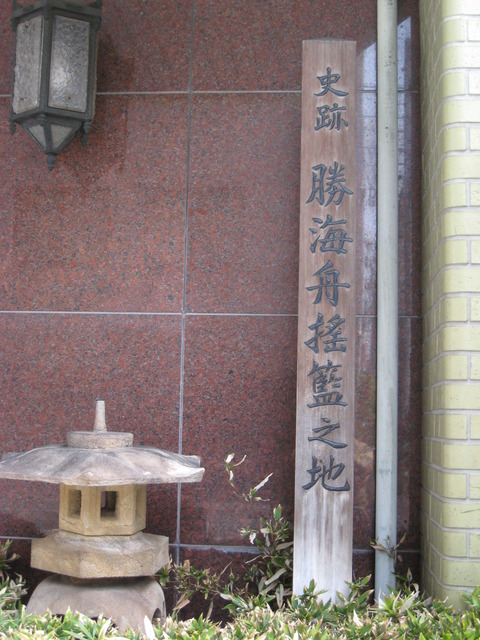 史跡 勝海舟揺籃之地